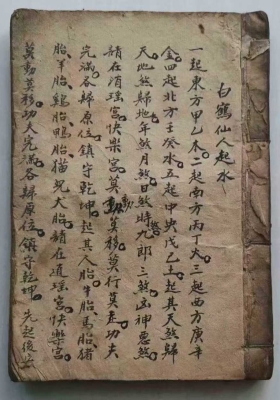 白鶴仙人起水
一起東方甲乙木二起南方丙丁火三起西方庚辛
金四起北方壬癸水五起中央戊己土起其天煞歸
天地煞歸地年煞月煞日煞時九郎三煞凶神惡煞
請在瑤宮快樂宮莫動莫移莫行莫走功夫
完滿各歸原位鎮守乾坤起其人胎牛胎馬胎猪
胎羊胎鷄胎鴨胎猫兒犬胎請在瑤宮快樂宮
莫動莫移功夫完滿各歸原位鎮守乾坤先起後安